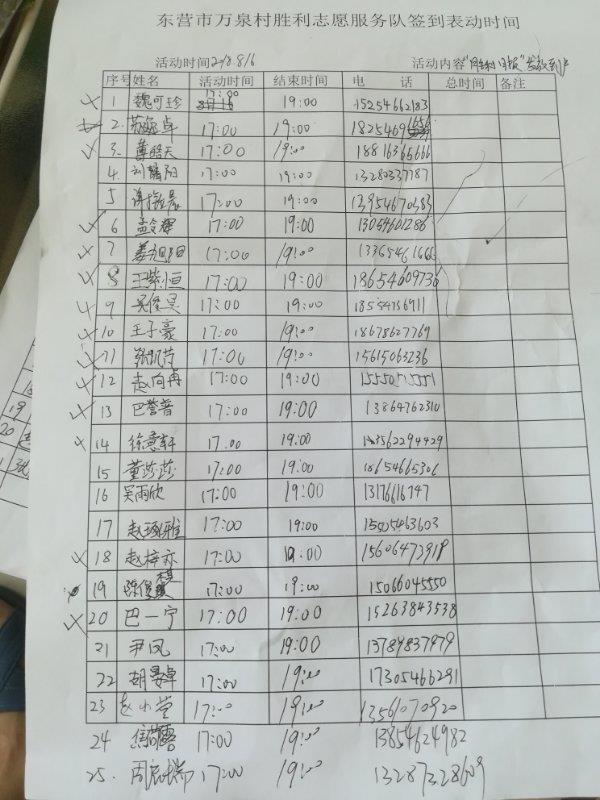 东营市万泉村胜利志愿服务队签到表动时间
活动时间2018.8/6 活动内容
序号 姓名 活动时间 结束时间 电 话 总时间 备注
1 魏可珍 17:00 19:00 15254662183
2 卓 17:00 19:00
3 皓天 17:00 19:00 18816365666
4 刘 阳 17:00 19:00 13280337787
5 17:00 19:00 13954670383
6 孟令辉 17:00 19:00 13054601286
7 姜旭阳 17:00 19:00
8 王紫恒 17:00 19:00 18654609736
9 吴俊昊 17:00 19:00 18554736911
10 王子豪 17:00 19:00 18678627769
11 张凯芹 17:00 19:00 15615063236
12 赵向冉 17:00 19:00
13 巴誉普 17:00 19:00 13864762310
14 徐 轩 17:00 19:00
15 董莎莎 17:00 19:00 18654665306
16 吴雨欣 17:00 19:00 13176616747
17 赵 雅 17:00 19:00 15505463603
18 赵梓亦 17:00 19:00 15606473918
19 陈俊 17:00 19:00 15066045550
20 巴一宁 17:00 19:00 15263843538
21 尹凤 17:00 19:00 13789837979
22 胡 卓 17:00 19:00 17305466291
23 赵小莹 17:00 19:00 13561070920
24 17:00 19:00 13854624982
25. 周 瑞 17:00 19:00 13287328609